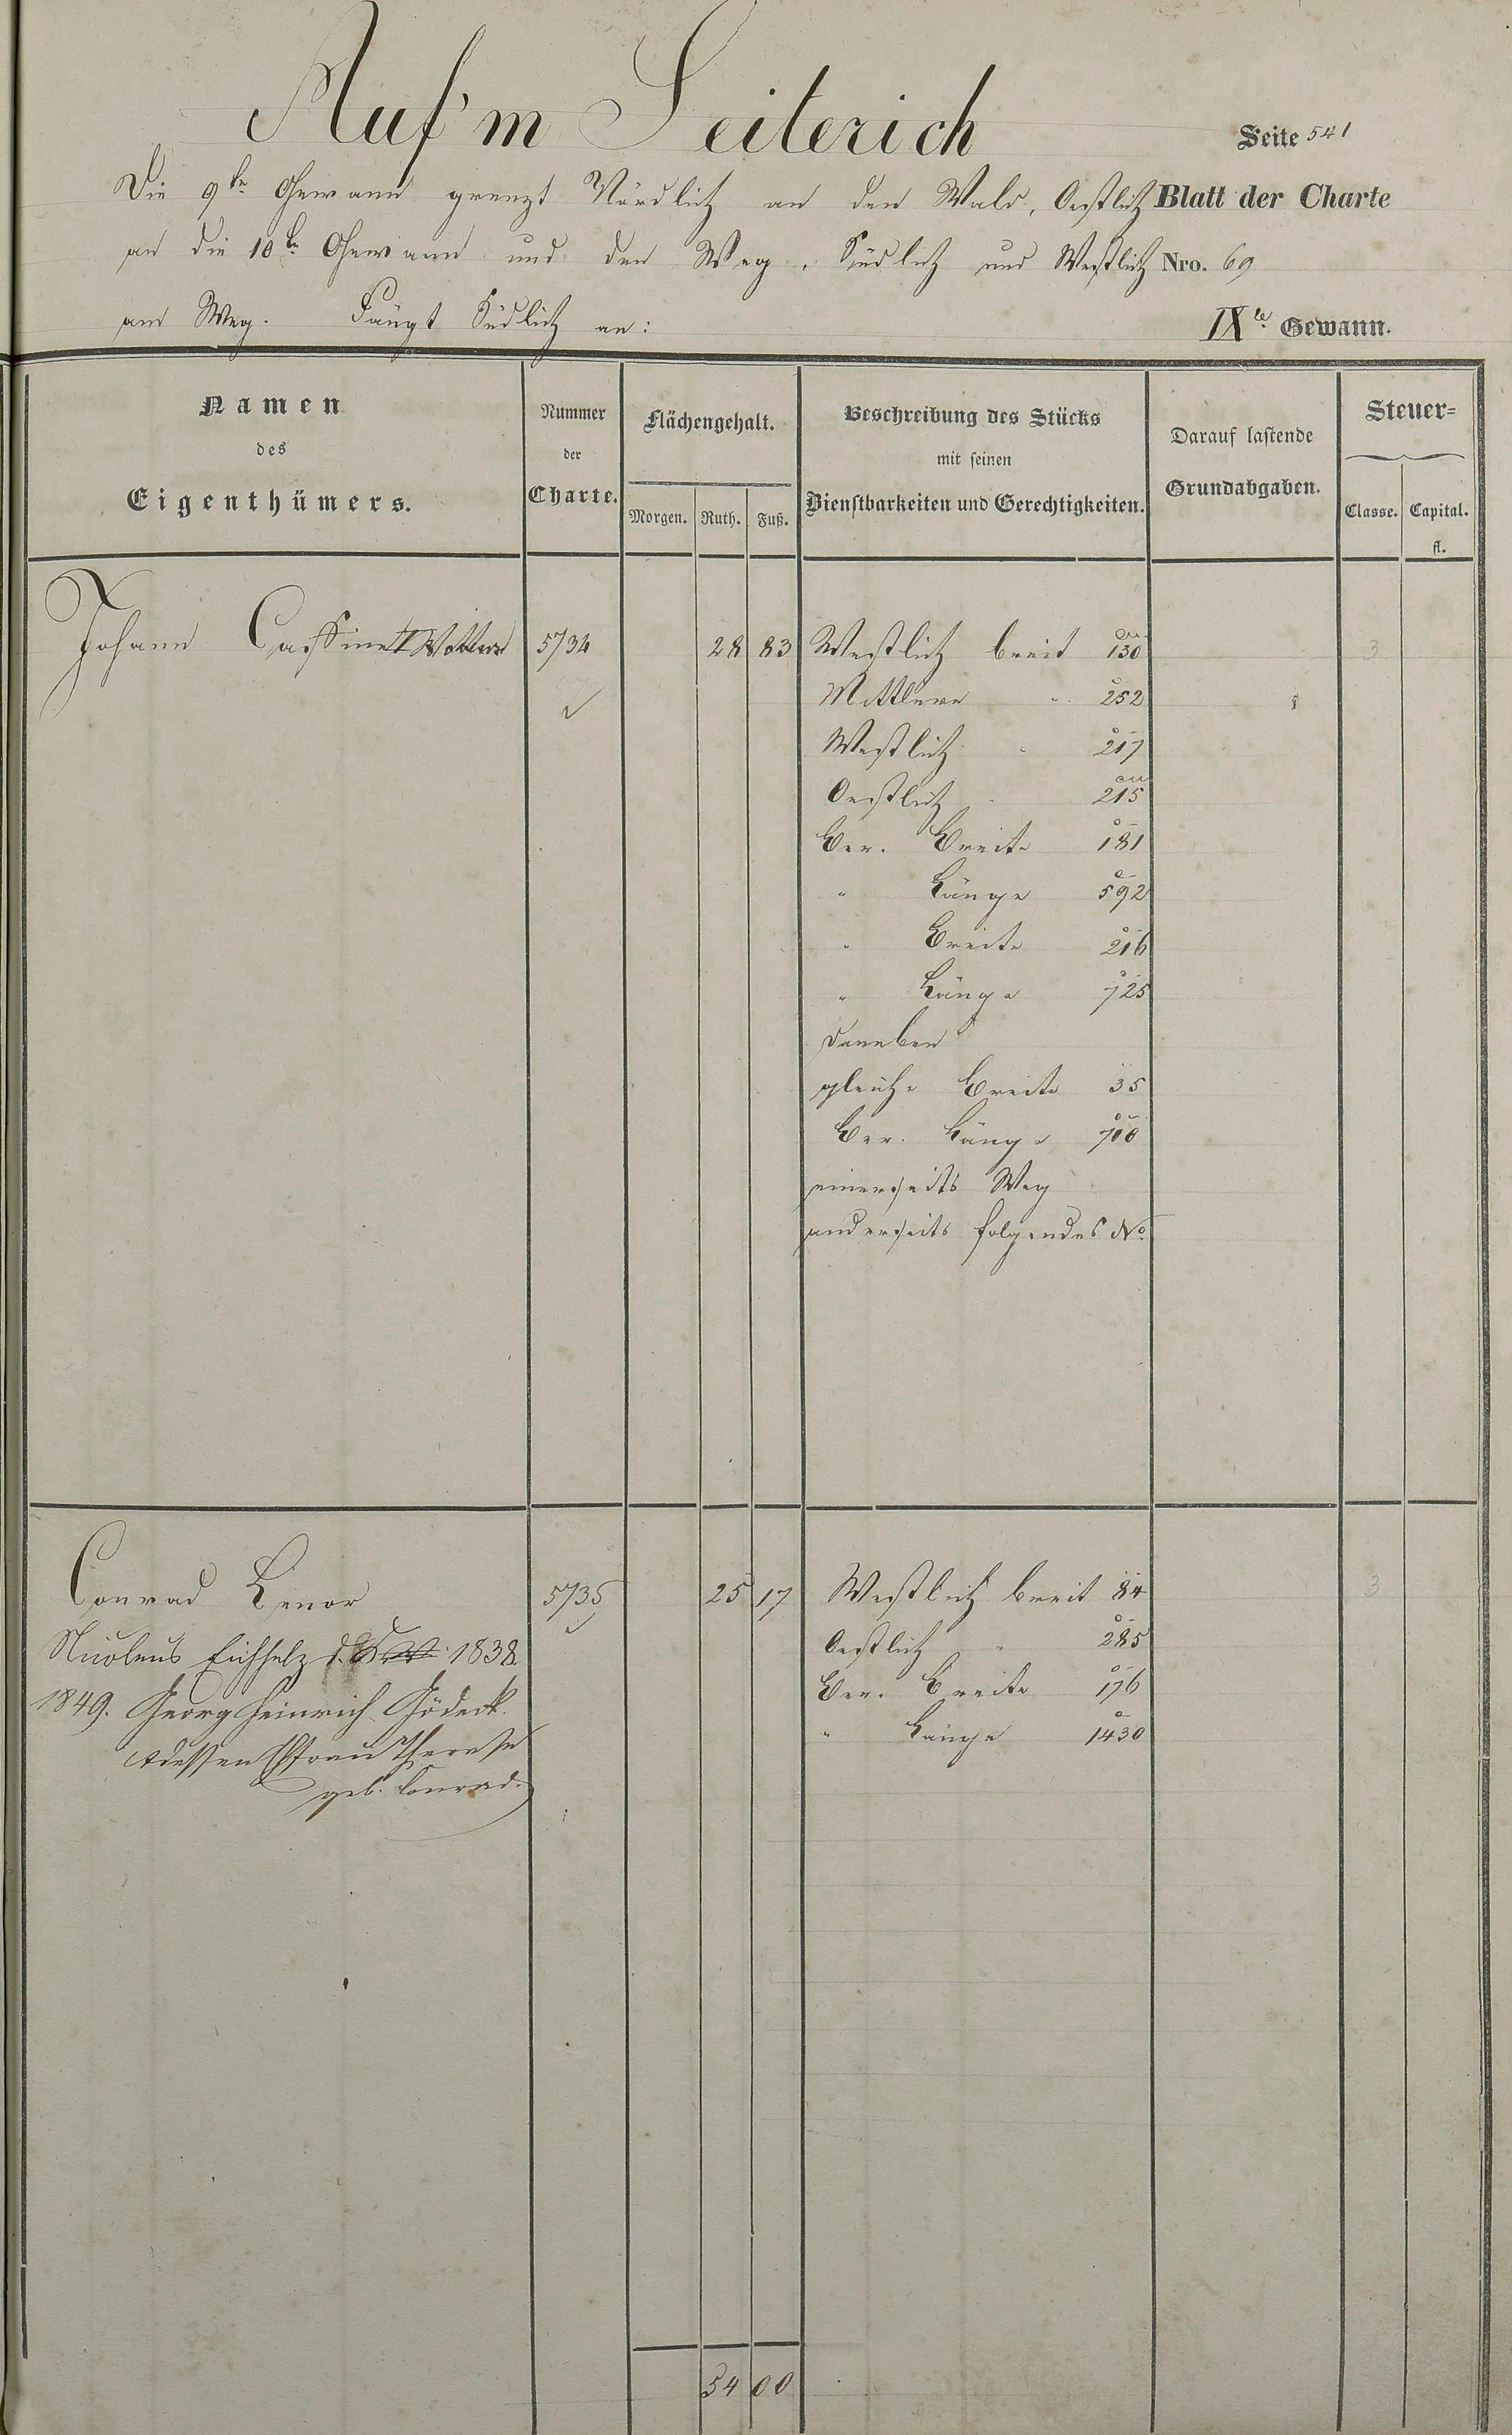 Auf'm Seiterich
Seite 541
Die 9te Gewann grenzt Nördlich an den Wald, Oestlich
Blatt der Charte
an die 10te Gewann und den Weg, Südlich und Westlich
Nro. 69
am Weg. Fängt Südlich an:
IXte Gewann.
Namen
des
Eigenthümers.
Nummer
der
Charte.
Flächengehalt.
Morgen. Ruth. Fuß.
Beschreibung des Stücks
mit seinen
Dienstbarkeiten und Gerechtigkeiten.
Darauf lastende
Grundabgaben.
Steuer=
Classe. Capital.
fl.
Johann 5734 28 83 Westlich breit 130 3
Mittlere " 252
Westlich " 217
Oestlich " 215
Ber. Breite 181
" Länge 592
" Breite 216
" Länge 725
daneben
gleiche Breite 35
Ber. Länge 700
einerseits Weg
anderseits folgendes No
Conrad Lenor 5735 25 17 Westlich breit 84 3
Nicolaus Eichholz 1838
Oestlich " 285
1849. Georg Heinrich Gödeck.
Ber. Breite 176
dessen Ehefrau Therese
" Länge 1430
geb. Conrad.
54 00